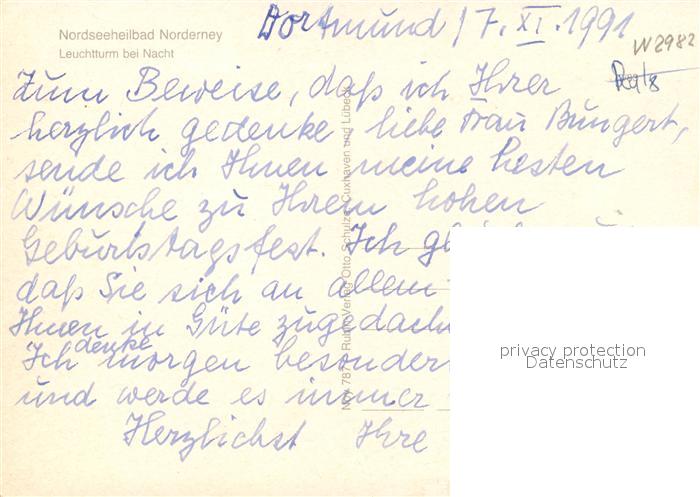 Nordseeheilbad Norderney
Leuchtturm bei Nacht
Dortmund 17. XI. 1991
W2982
Zum Beweise, daß ich Ihrer
herzlich gedenke, liebe Frau Bungert,
sende ich Ihnen meine besten
Wünsche zu Ihrem hohen
Geburtstagsfest. Ich
daß Sie sich an allem
Ihnen in Güte zugedach
Ich denke morgen besonder
und werde es immer
Herzlichst Ihre
Rubin Verlag Otto Schulze, Cuxhaven und Lübeck
privacy protection
Datenschutz